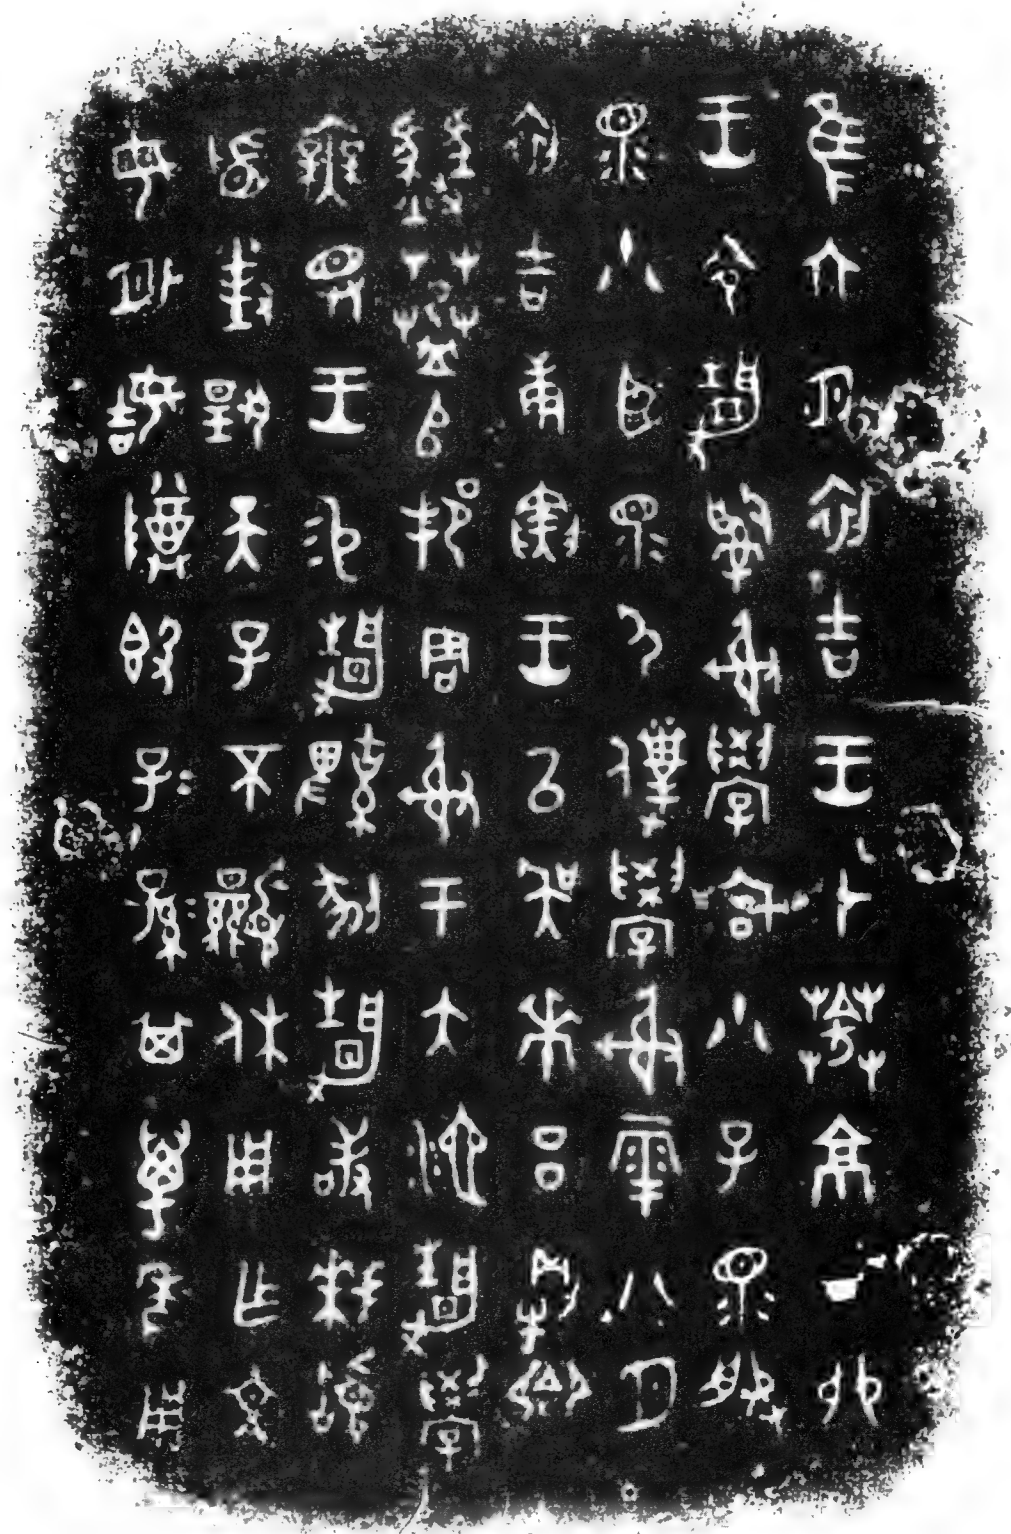 隹六月初吉王才𦯍京丁卯
王令静𤔲射學宫小子眔服
眔小臣眔尸僕學射雩八月
初吉庚寅王㠯吴𠦪吕犅卿
豳𦯍𠂤邦周射于大池静學
無眔王易静鞞剢静敢拜𩒨
首對揚天子不顯休用乍文
母外姞尊簋子=孫=其萬年用